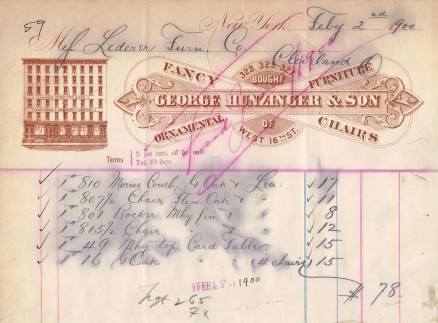 59
New York, Feby 2nd 1900
Lederer Furn. Co.
Cleveland O
FANCY 323, 325, 327 FURNITURE
BOUGHT
GEORGE HUNZINGER & SON
OF
ORNAMENTAL WEST 16TH ST. CHAIRS
Terms { 2 per cent. off for cash
Net, 60 days.
✓ 1 810 Morris Couch G Oak + Lea ✓ 17
✓ 1 807½ Chair Flem Oak " ✓ 11
✓ 1 801 Rocker Mhy fin " ✓ 8
✓ 1 815½ Chair " " ✓ 12
✓ 1 49 Mhy top Card Table ✓ 15
✓ 1 16 G Oak " " (4 chairs) ✓ 15
FEB 7 1900
$ 78.
Frgt 265